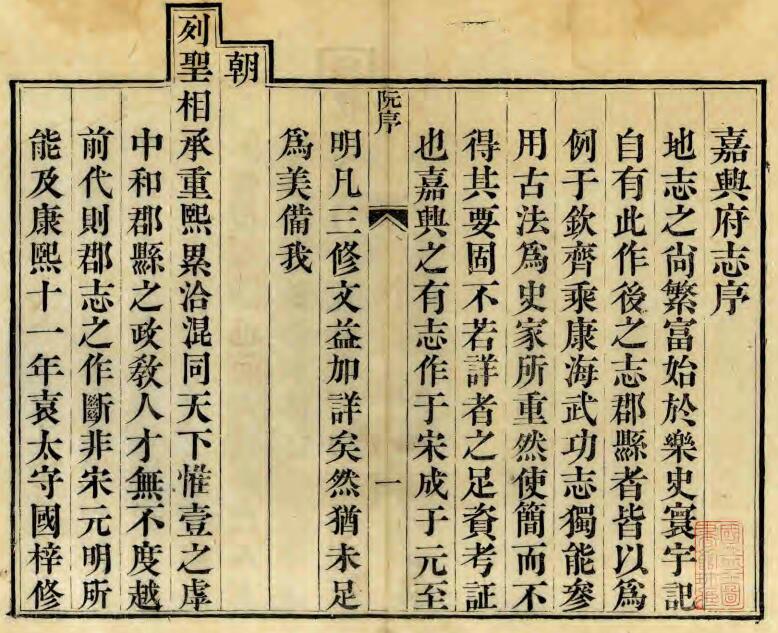 嘉興府志序
地志之尙繁富始於樂史寰宇記
自有此作後之志郡縣者皆以爲
例于欽齊乘康海武功志獨能參
用古法爲史家所重然使簡而不
得其要固不若詳者之足資考証
也嘉興之有志作于宋成于元至
阮序
一
明凡三修文益加詳矣然猶未足
爲美備我
朝
列聖相承重熙累洽混同天下惟壹之虖
中和郡縣之政敎人才無不度越
前代則郡志之作斷非宋元明所
能及康熙十一年袁太守國梓修